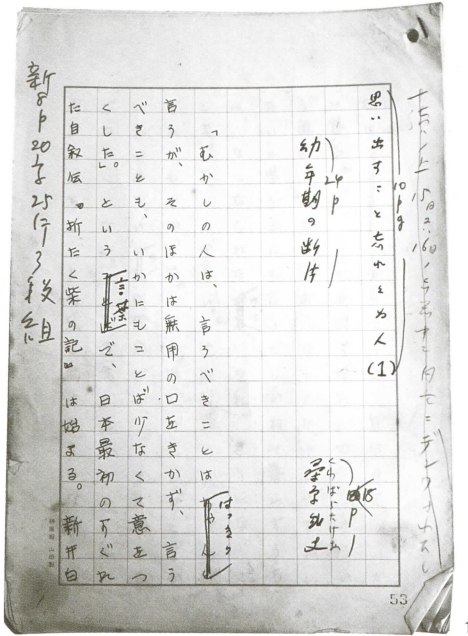 思い出すこと忘れえぬ人(1)
10pg
幼年期の断片
24p
くわばらたけお
桑原武夫
18p
「むかしの人は、言うべきことははっきり
言うが、そのほかは無用の口をきかず、言う
べきことも、いかにもことば少なくて意をつ
くした」。という言葉で、日本最初のすぐれ
た自叙伝『折たく柴の記』は始まる。新井白
新8p20字25行3段組
53